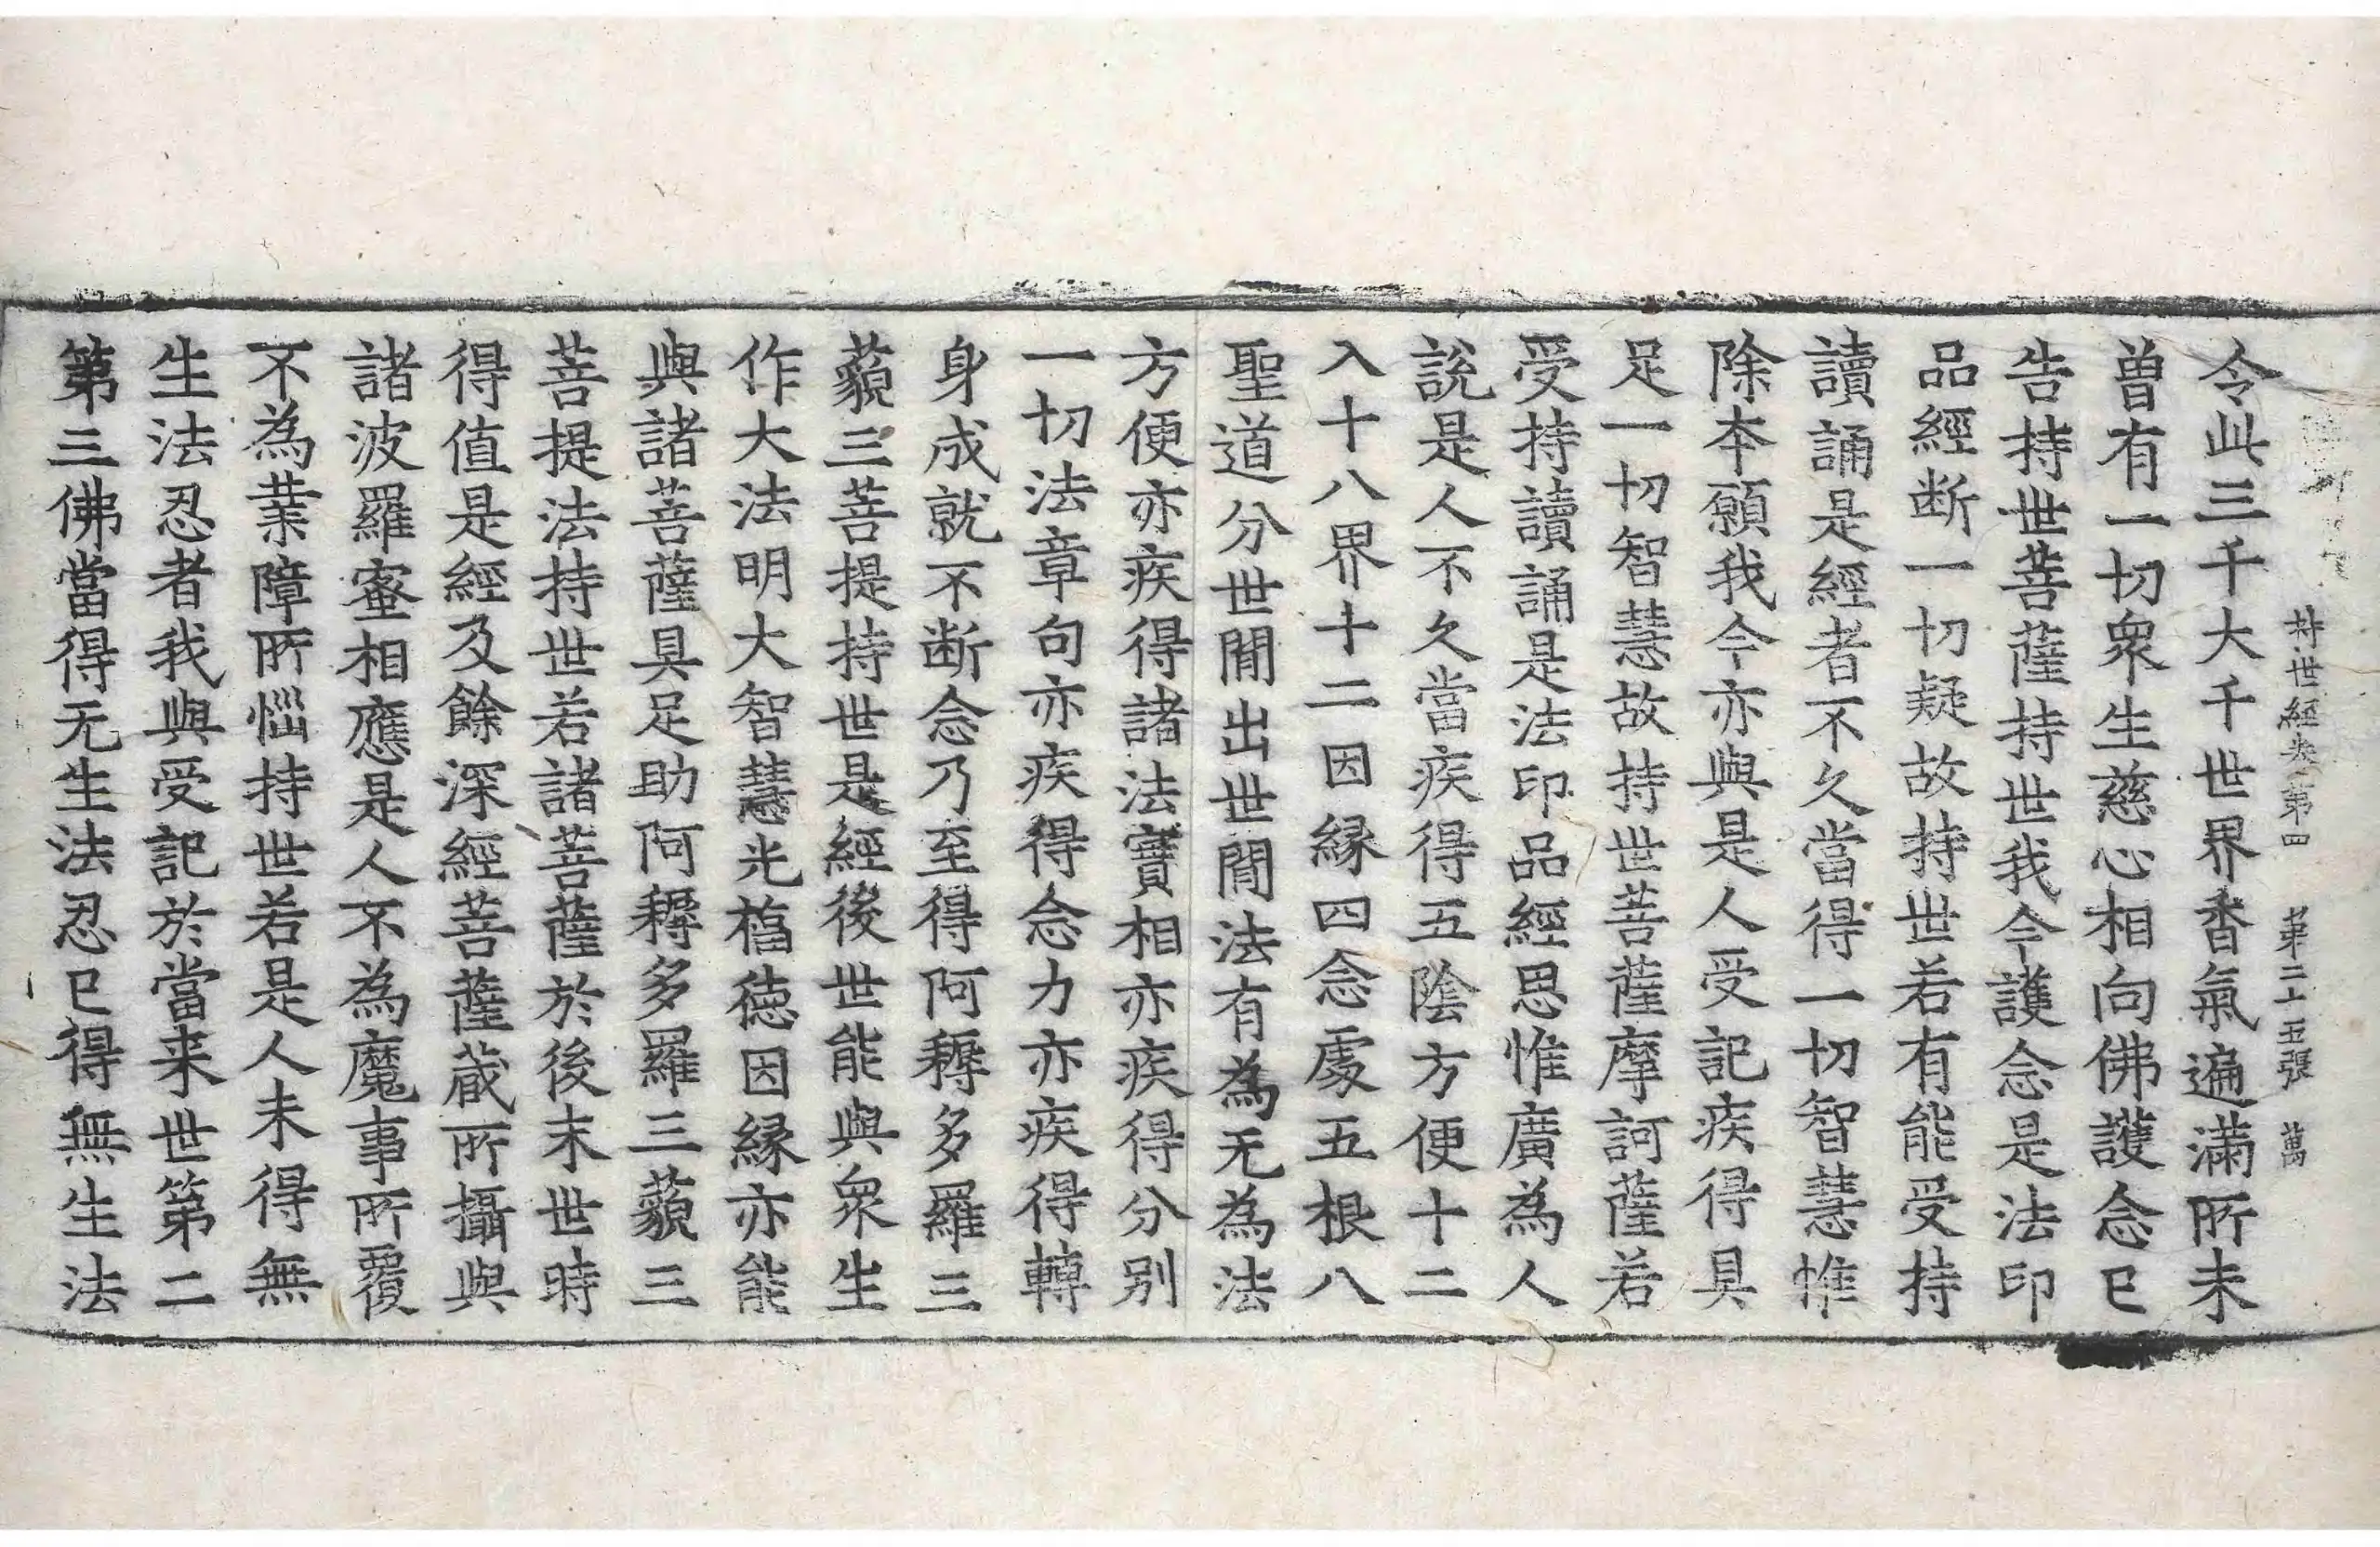 持世經卷第四 第二十五張 萬
令此三千大千世界香氣遍滿所未
曽有一切衆生慈心相向佛護念已
告持世菩薩持世我今護念是法印
品經断一切疑故持世若有能受持
讀誦是經者不久當得一切智慧惟
除本願我今亦與是人受記疾得具
足一切智慧故持世菩薩摩訶薩若
受持讀誦是法印品經思惟廣為人
說是人不久當疾得五陰方便十二
入十八界十二因縁四念處五根八
聖道分世閒出世閒法有為无為法
方便亦疾得諸法實相亦疾得分别
一切法章句亦疾得念力亦疾得轉
身成就不断念乃至得阿耨多羅三
藐三菩提持世是經後世能與衆生
作大法明大智慧光善徳因縁亦能
與諸菩薩具足助阿耨多羅三藐三
菩提法持世若諸菩薩於後末世時
得值是經及餘深經菩薩蔵所攝與
諸波羅蜜相應是人不為魔事所覆
不為業障所惱持世若是人未得無
生法忍者我與受記於當来世第二
第三佛當得无生法忍已得無生法